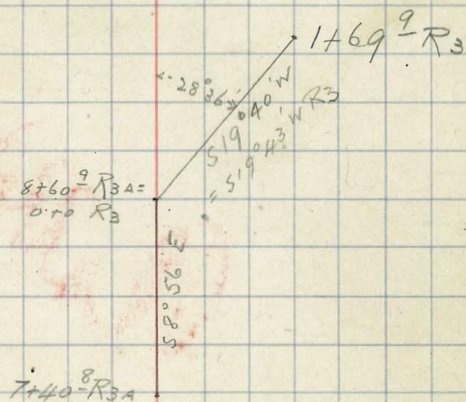 1+69⁹ R3
28°36'
S19°40'W
= S19°43'W R3
8+60⁹ R3A=
0+0 R3
S8°56 E
7+40⁸ R3A